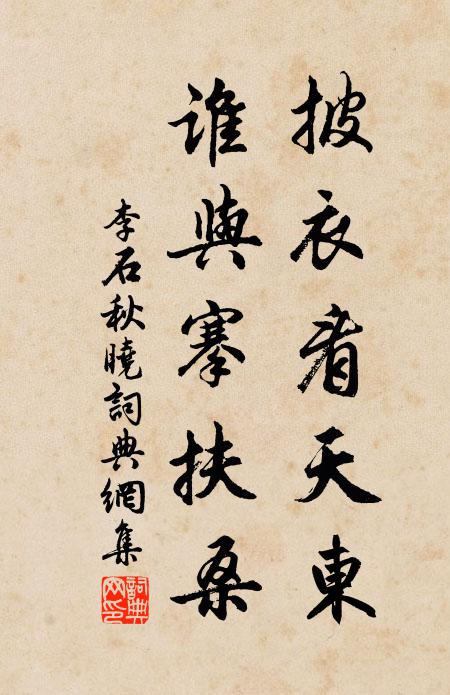 披衣看天東
誰與搴扶桑
李石秋曉詞典網集
詞典網印